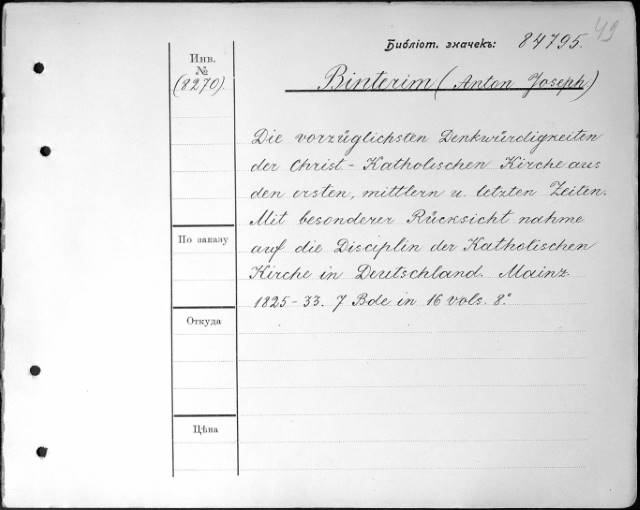 49
Библіот. значекъ: 84795.
Инв.
№
(8270)
Binterim (Anton Joseph)
Die vorzüglichsten Denkwürdigkeiten
der Christ-Katholischen Kirche aus
den ersten, mittlern u. letzten Zeiten.
Mit besonderer Rücksicht nahme
auf die Disciplin der Katholischen
Kirche in Deutschland. Mainz
1825-33. 7 Bde in 16 vols. 8.º
По заказу
Откуда
Цѣна